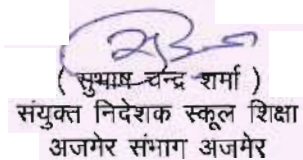 ( सुभाष चन्द्र शर्मा )
संयुक्त निदेशक स्कूल शिक्षा
अजमेर संभाग अजमेर